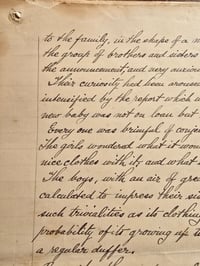 to the family, in the shape of a n
the group of brothers and sisters
the announcement, and very
Their curiosity had been arouse
intensified by the report which w
new baby was not on loan but
Every one was brimful of conjec
The girls wondered what it woul
nice clothes with it, and what
The boys, with an air of grea
calculated to impress their sis
such trivialities as its clothin
probability of its growing up t
a regular duffer.